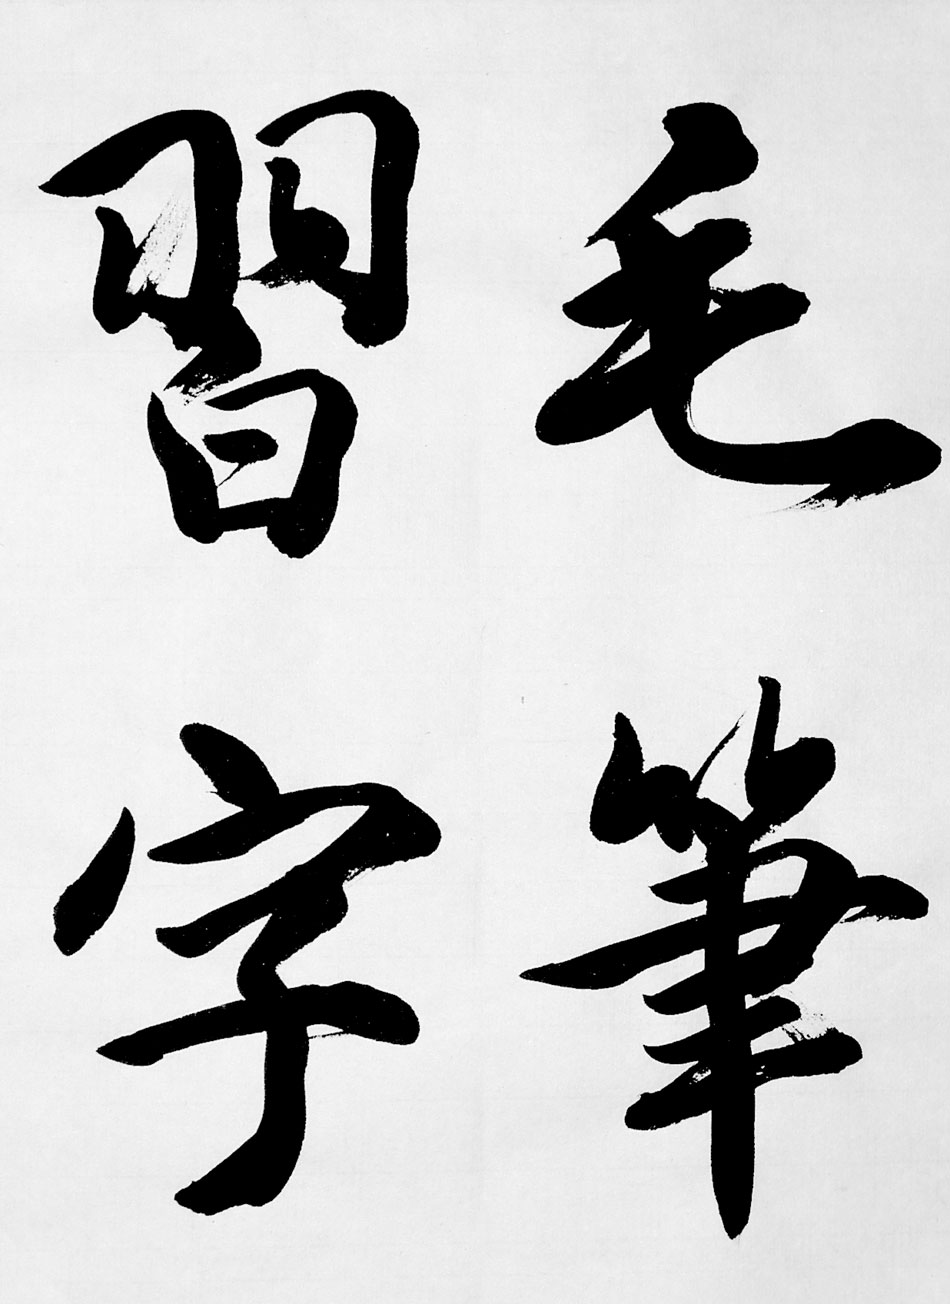 毛筆
習字